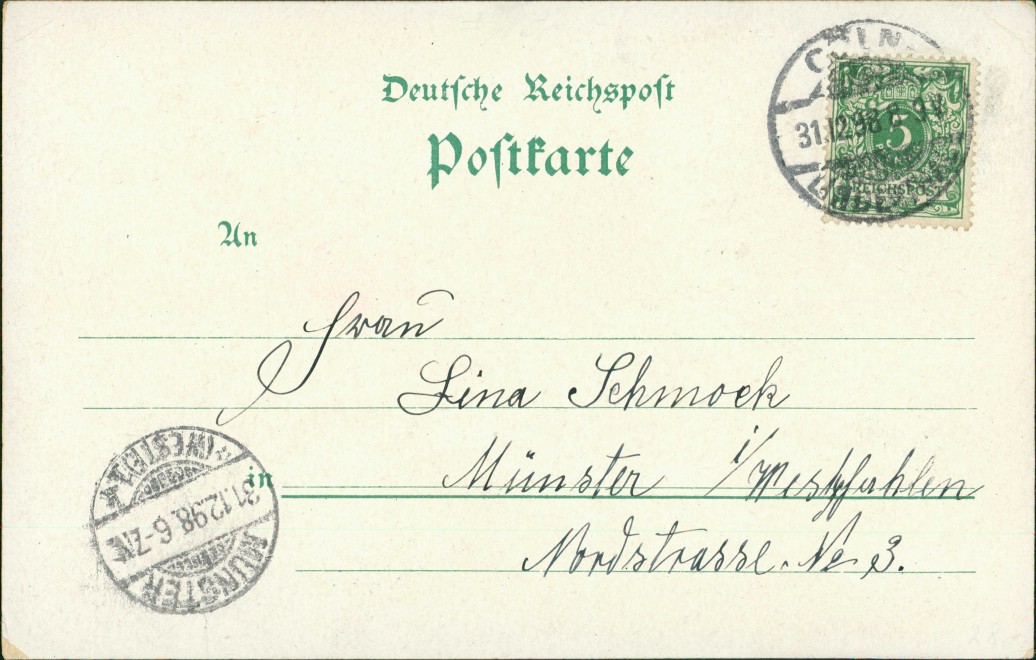 Deutsche Reichspost
Postkarte
An
31.12.98
5
REICHSPOST
Frau
Lina Schmock
Münster i/Westfahlen
in
Nordstrasse. No 3.
(WESTF.)
31.12.98.6-7N
MÜNSTER